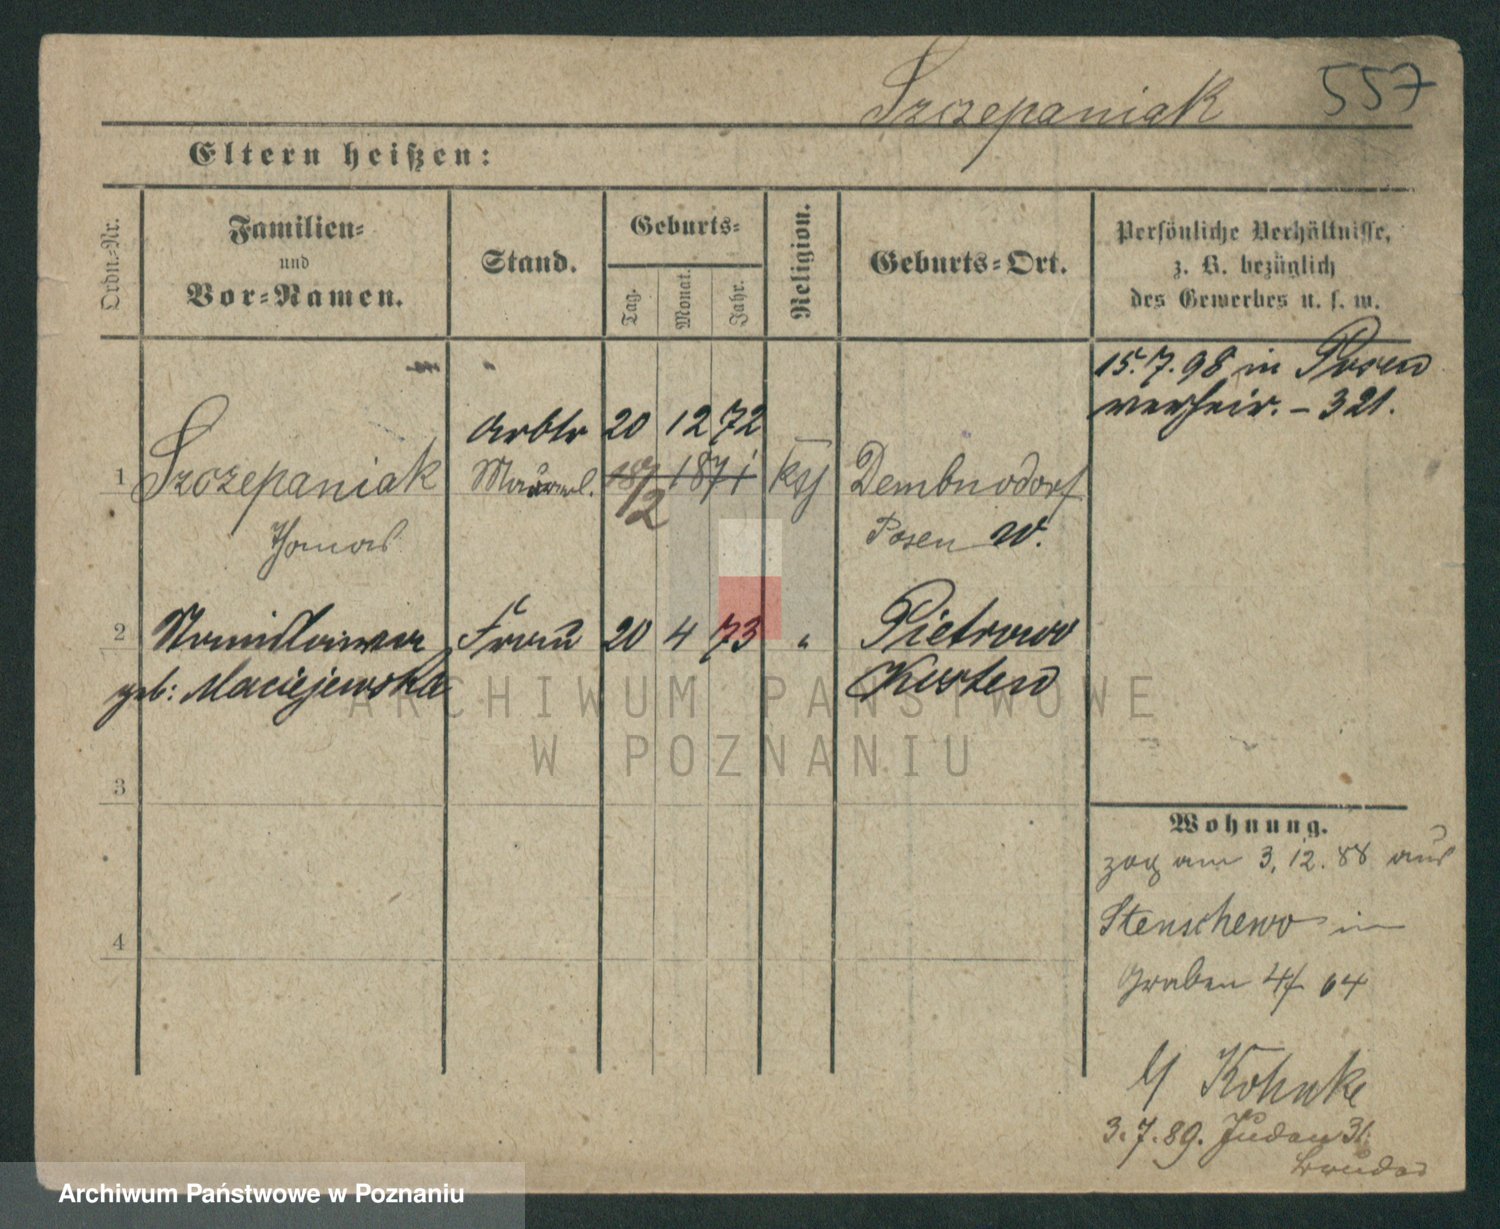 Szczepaniak 557
Eltern heißen:
Ordn.-Nr.
Familien-
und
Vor-Namen.
Stand.
Geburts-
Tag.
Monat.
Jahr.
Religion.
Geburts-Ort.
Persönliche Verhältnisse,
z. B. bezüglich
des Gewerbes u. s. w.
15.7.98 in Posen
verheir. - 321.
Arbtr 20 12 72
1 Szczepaniak 1871 kth Dembnodorf
Thomas Posen W.
2 Stanislawa Frau 20 4 73 " Pietrowo
geb: Maciejewska Kosten
3
4
Wohnung.
zog am 3.12.88 aus
Stenschewo in
Graben 4/ 64
Kohnke
3.7.89. Juden 31.
ARCHIWUM PAŃSTWOWE
W POZNANIU
Archiwum Państwowe w Poznaniu